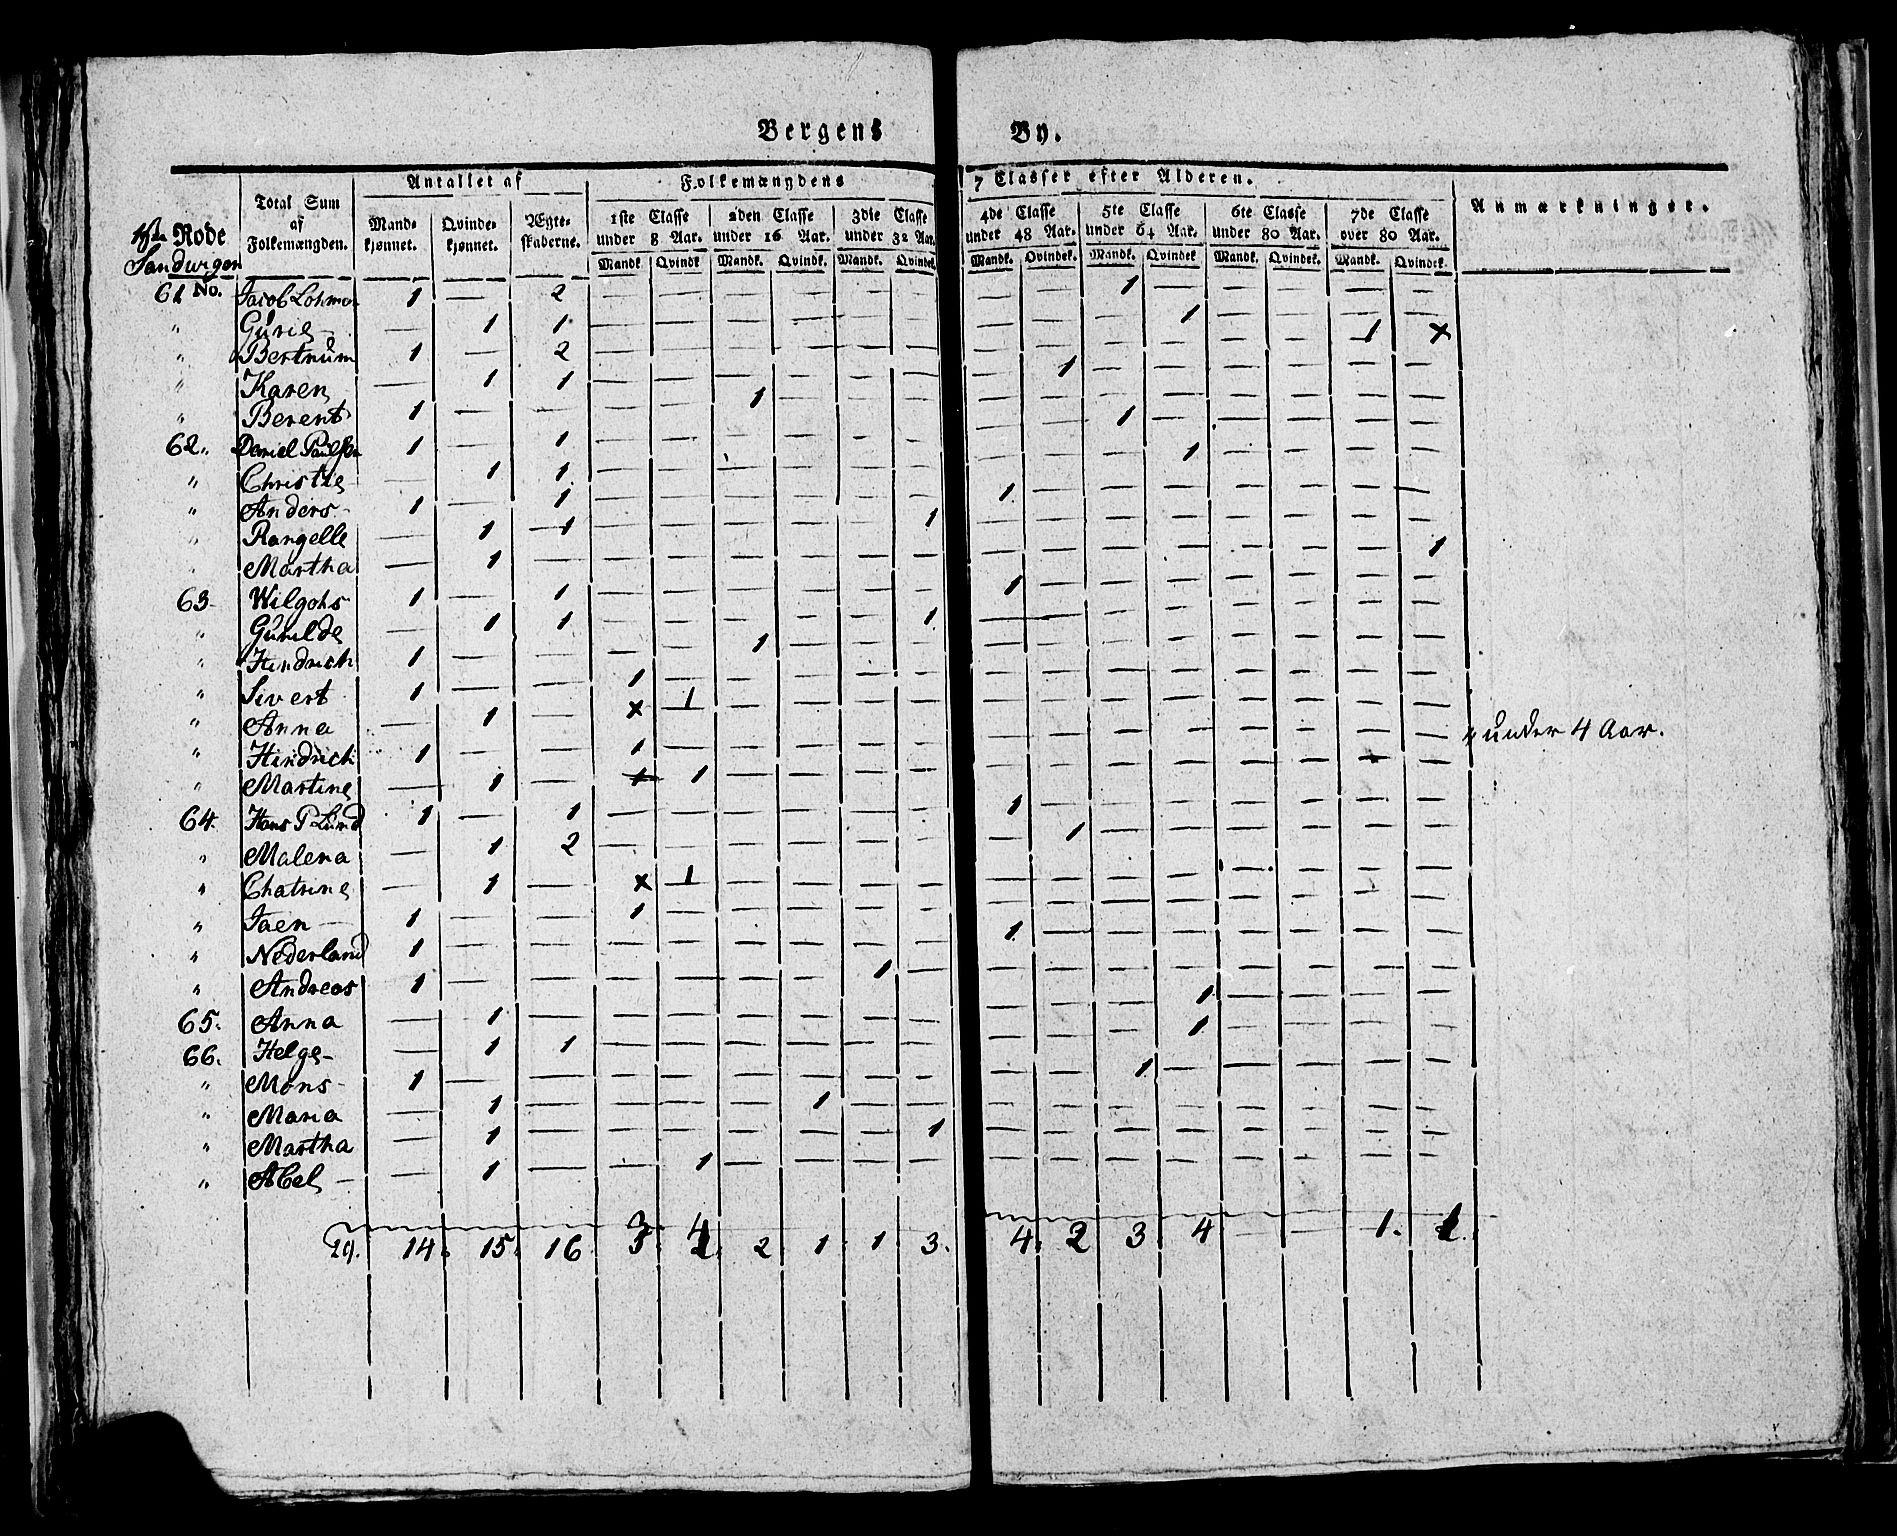 Bergens By.
Total Sum af Folkemængden.
Antallet af
Mandkjønnet. Qvindekjønnet. Ægteskaberne.
Folkemængdens 7 Classer efter Alderen.
1ste Classe under 8 Aar. 2den Classe under 16 Aar. 3die Classe under 32 Aar. 4de Classe under 48 Aar. 5te Classe under 64 Aar. 6te Classe under 80 Aar. 7de Classe over 80 Aar.
Mandk. Qvindek. Mandk. Qvindek. Mandk. Qvindek. Mandk. Qvindek. Mandk. Qvindek. Mandk. Qvindek. Mandk. Qvindek.
Anmærkninger.
Rode
Sandvigen
No.
61 Jacob Lohman 1 — 2 1
" Gurie — 1 1 1 1 x
" Bertnum 1 — 2
" Karen — 1 1 1
" Berent 1 — — 1 1
62 " Daniel Paulsen 1 — 1
" Christie — 1 1 1
" Anders 1 — 1 1
" Rangelle — 1 1 1
" Martha — 1 — 1
63 Wilgohs 1 — 1 1
" Gunilde — 1 1 1
" Hindrich 1 — — 1
" Sivert 1 — — 1
" Anna — 1 — x 1 " under 4 Aar.
" Hindrich 1 — — 1
" Martine — 1 — 1
64. Hans P Lund 1 — 1 1
" Malena — 1 2 1
" Chatrine — 1 — x 1
" Jaen 1 — — 1
" Nederland 1 — — 1
" Andreas 1 — — 1
65. Anna — 1 — 1
66. Helge — 1 1 1
" Mons 1 — — 1
" Maria — 1 — 1
" Martha — 1 — 1
" Abel — 1 — 1
3 4
29. 14. 15. 16 3 2 1 1 3. 4. 2 3 4 1. 1.